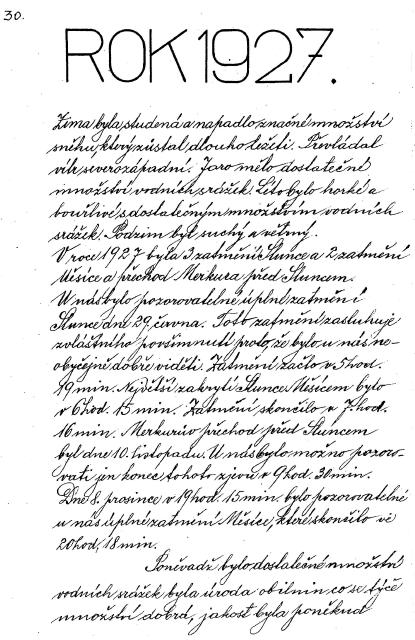 30.
ROK 1927.
Zima byla studená a napadlo značné množství
sněhu, který zůstal dlouho ležeti. Převládal
vítr severozápadní. Jaro mělo dostatečné
množství vodních srážek. Léto bylo horké a
bouřlivé s dostatečným množstvím vodních
srážek. Podzim byl suchý a větrný.
V roce 1927 byla 3 zatmění Slunce a 2 zatmění
Měsíce a přechod Merkura před Sluncem.
U nás bylo pozorovatelné úplné zatmění
Slunce dne 29. června. Toto zatmění zasluhuje
zvláštního povšimnutí proto, že bylo u nás ne-
obyčejně dobře viděti. Zatmění začlo v 5 hod.
19 min. Největší zakrytí Slunce Měsícem bylo
v 6 hod. 15 min. Zatmění skončilo v 7 hod.
16 min. Merkurův přechod před Sluncem
byl dne 10. listopadu. U nás bylo možno pozoro-
vati jen konec tohoto zjevu v 9 hod. 30 min.
Dne 8. prosince v 19 hod. 15 min. bylo pozorovatelné
u nás úplné zatmění Měsíce, které skončilo ve
20 hod. 18 min.
Poněvadž bylo dostatečné množství
vodních srážek byla úroda obilnin co se týče
množství dobrá, jakost byla poněkud